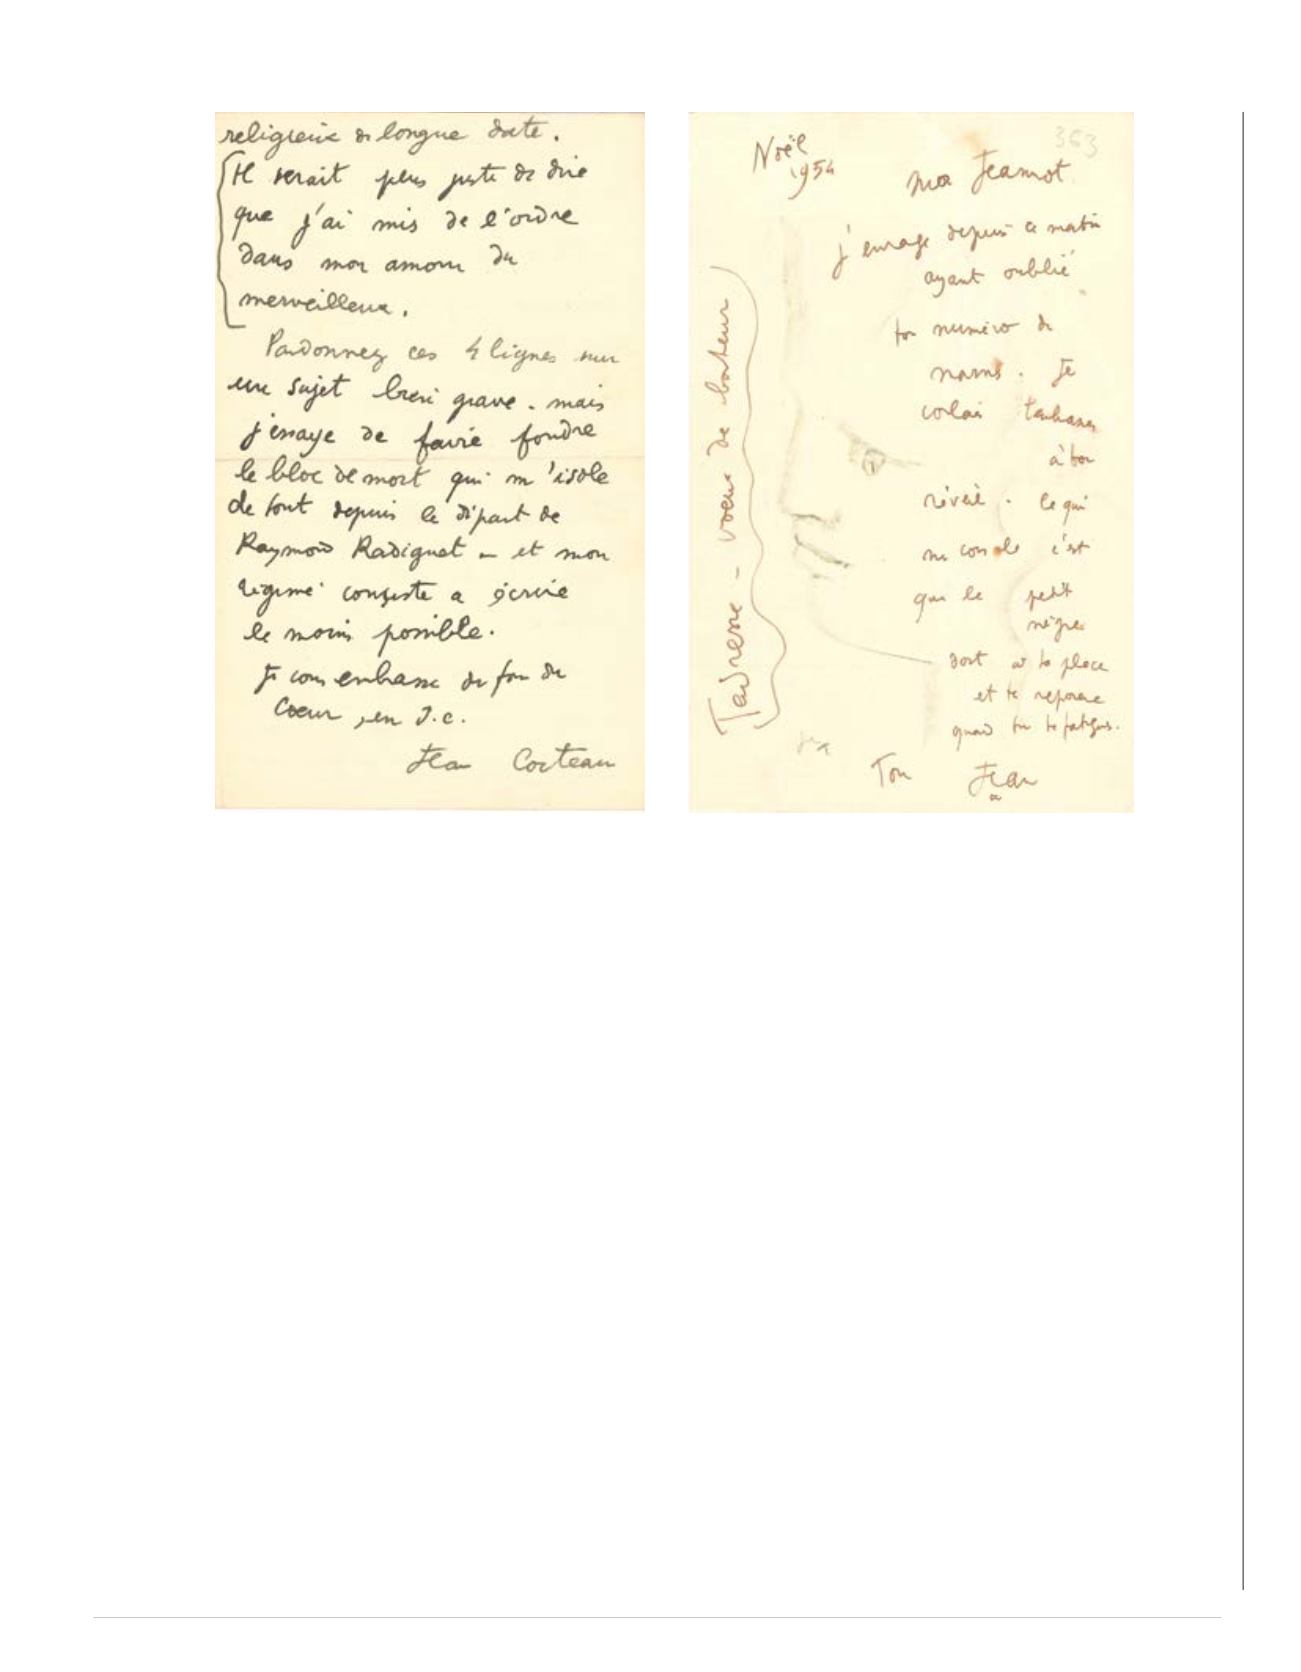 religieuse de longue date.
Il serait plus juste de dire
que j'ai mis de l'ordre
dans mon amour du
merveilleux.
Pardonnez ces 4 lignes sur
un sujet bien grave. mais
j'essaye de faire fondre
le bloc de mort qui m'isole
de tout depuis le départ de
Raymond Radiguet — et mon
régime consiste a écrire
le moins possible.
Je vous embrasse du fon du
Coeur, en J.C.
Jean Cocteau
Noël
1954
363
mon Jeannot
j'enrage depuis ce matin
ayant oublié
ton numéro de
. Je
voulais t'embrasser
à ton
réveil. Ce qui
me console c'est
que le petit
nègre
dort à ta place
et te repose
quand tu te fatigues.
Ton Jean
T'adresse - voeux de bonheur